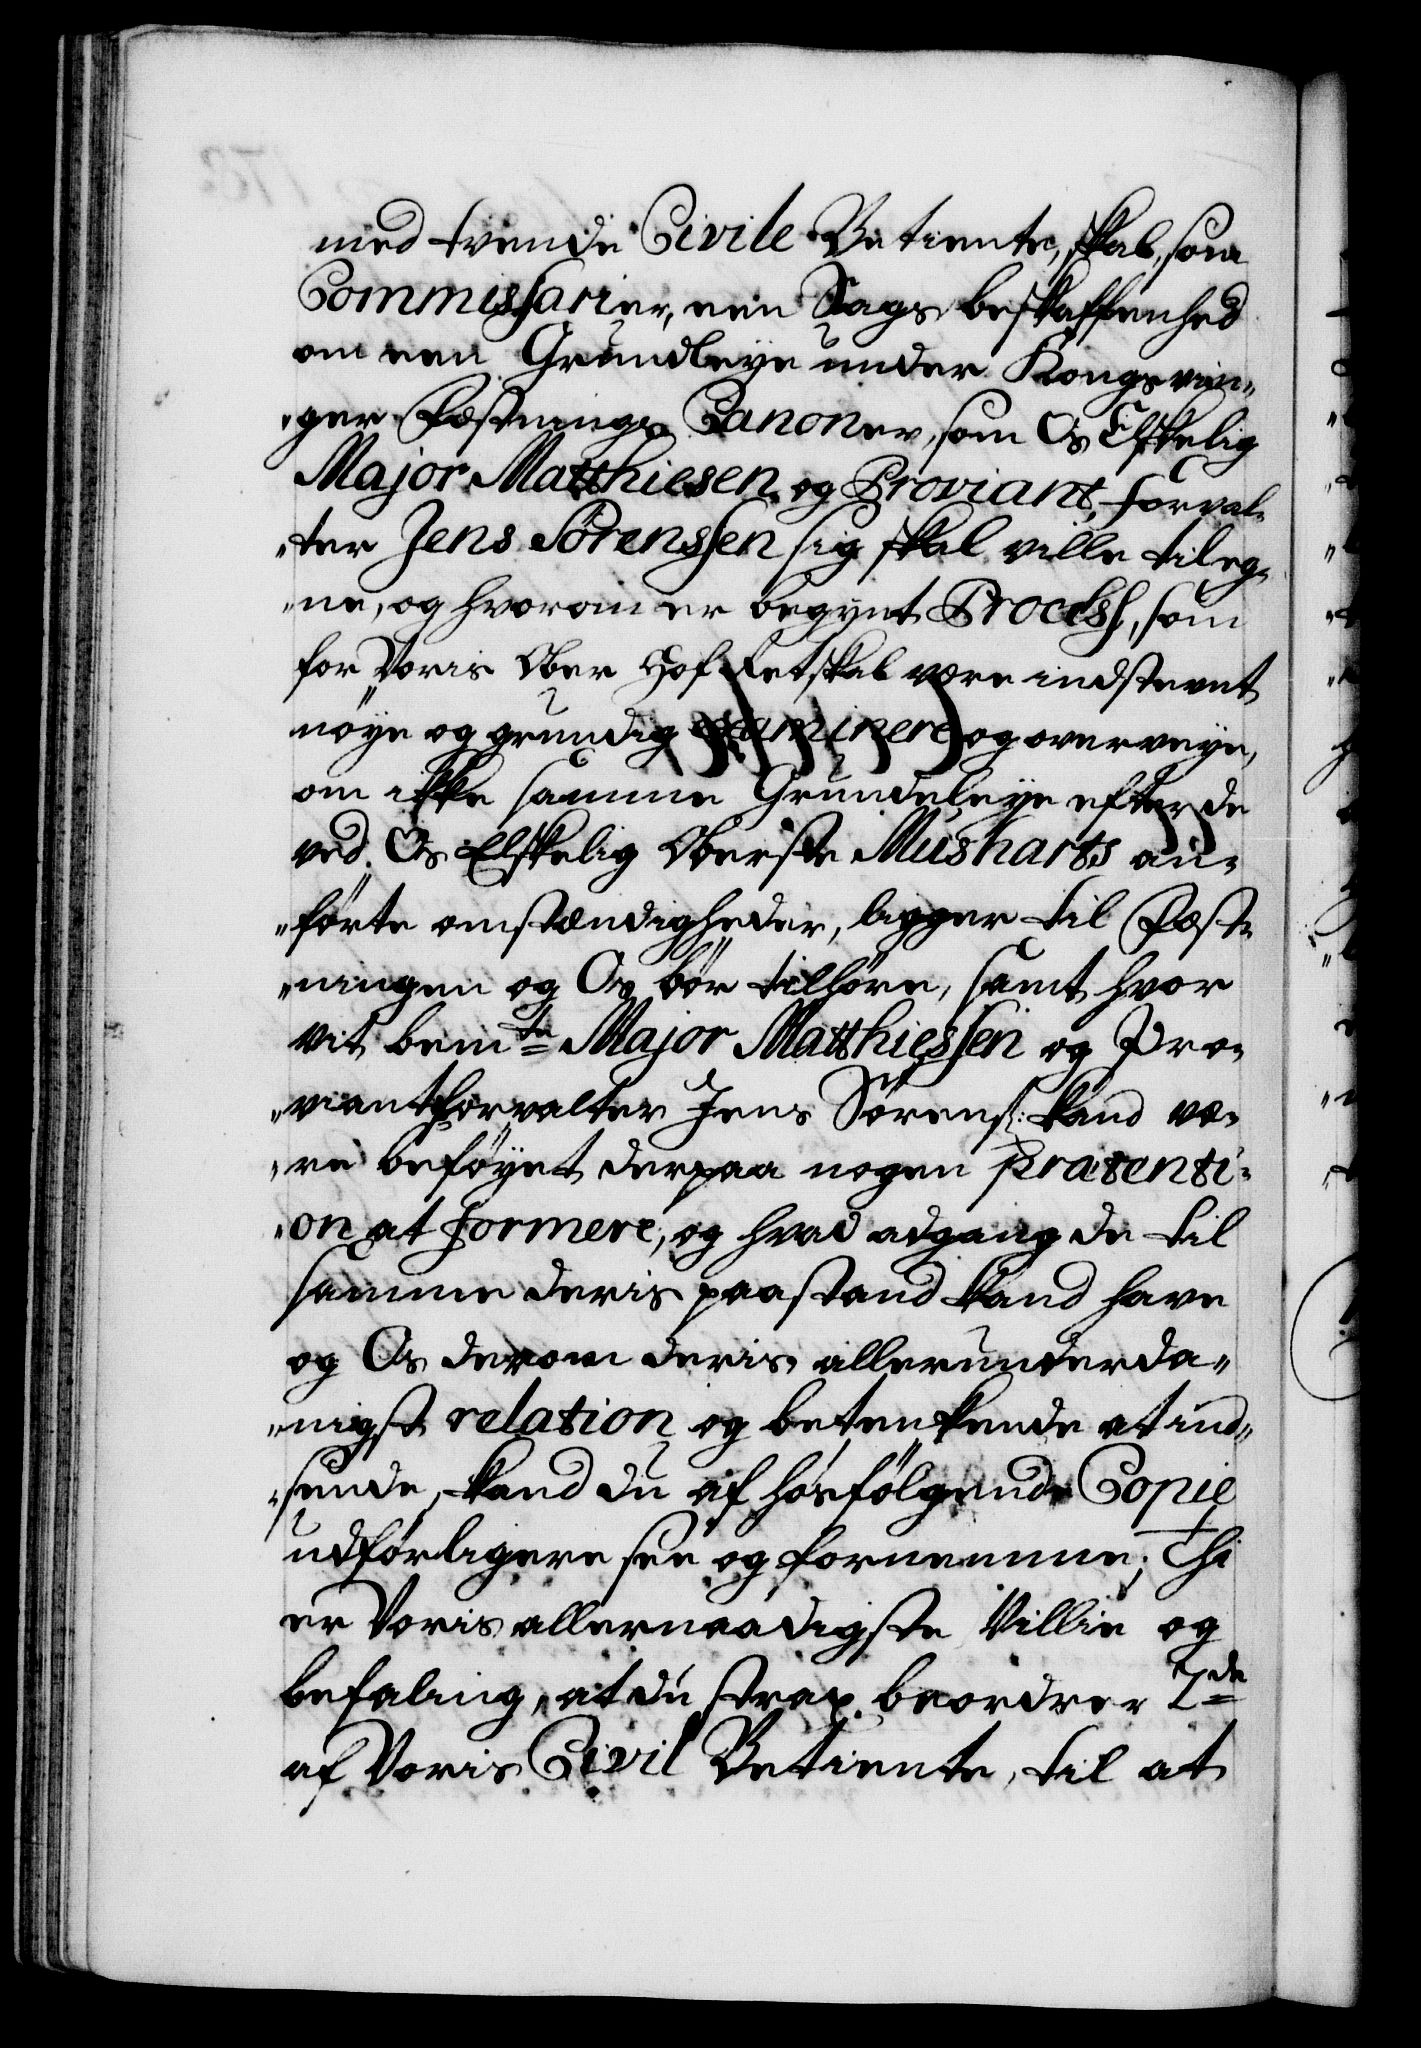 med tvende Civile Betiente, skal, som
Commissarier, een Sags beskaffenhed
om een Grundleye under Kongsvin„
„ger Fæstnings Canoner, som Os Elskelig
Major Matthiesen og Proviant, Forval„
„ter Jens Sörenssen sig skal ville tileg„
„ne, og hvorom er begynt Process, som
for Voris Ober Hof Ret skal være indstevnt
nöye og grundig examinere og overveye,
om ikke samme Grundeleye efter de
ved Os Elskelig Oberste Musharts an„
„förte omstændigheder, ligger til Fæst„
„ningen og Os bör tilhöre, samt hvor
vit bemte Major Matthiessen og Pro„
„viantforvalter Jens Sörens: kand væ„
„re beföyet derpaa nogen Prætenti„
„on at formere, og hvad adgang de til
samme deris paastand kand have
og Os derom deris allerunderda„
„nigst relation og betenkende at ind„
„sende, kand du af hosfölgende Copie
udförligere see og fornemme; Thi
er Voris allernaadigste Villie og
befaling, at du strax beordrer 2de
af Voris Civil Betiente, til at